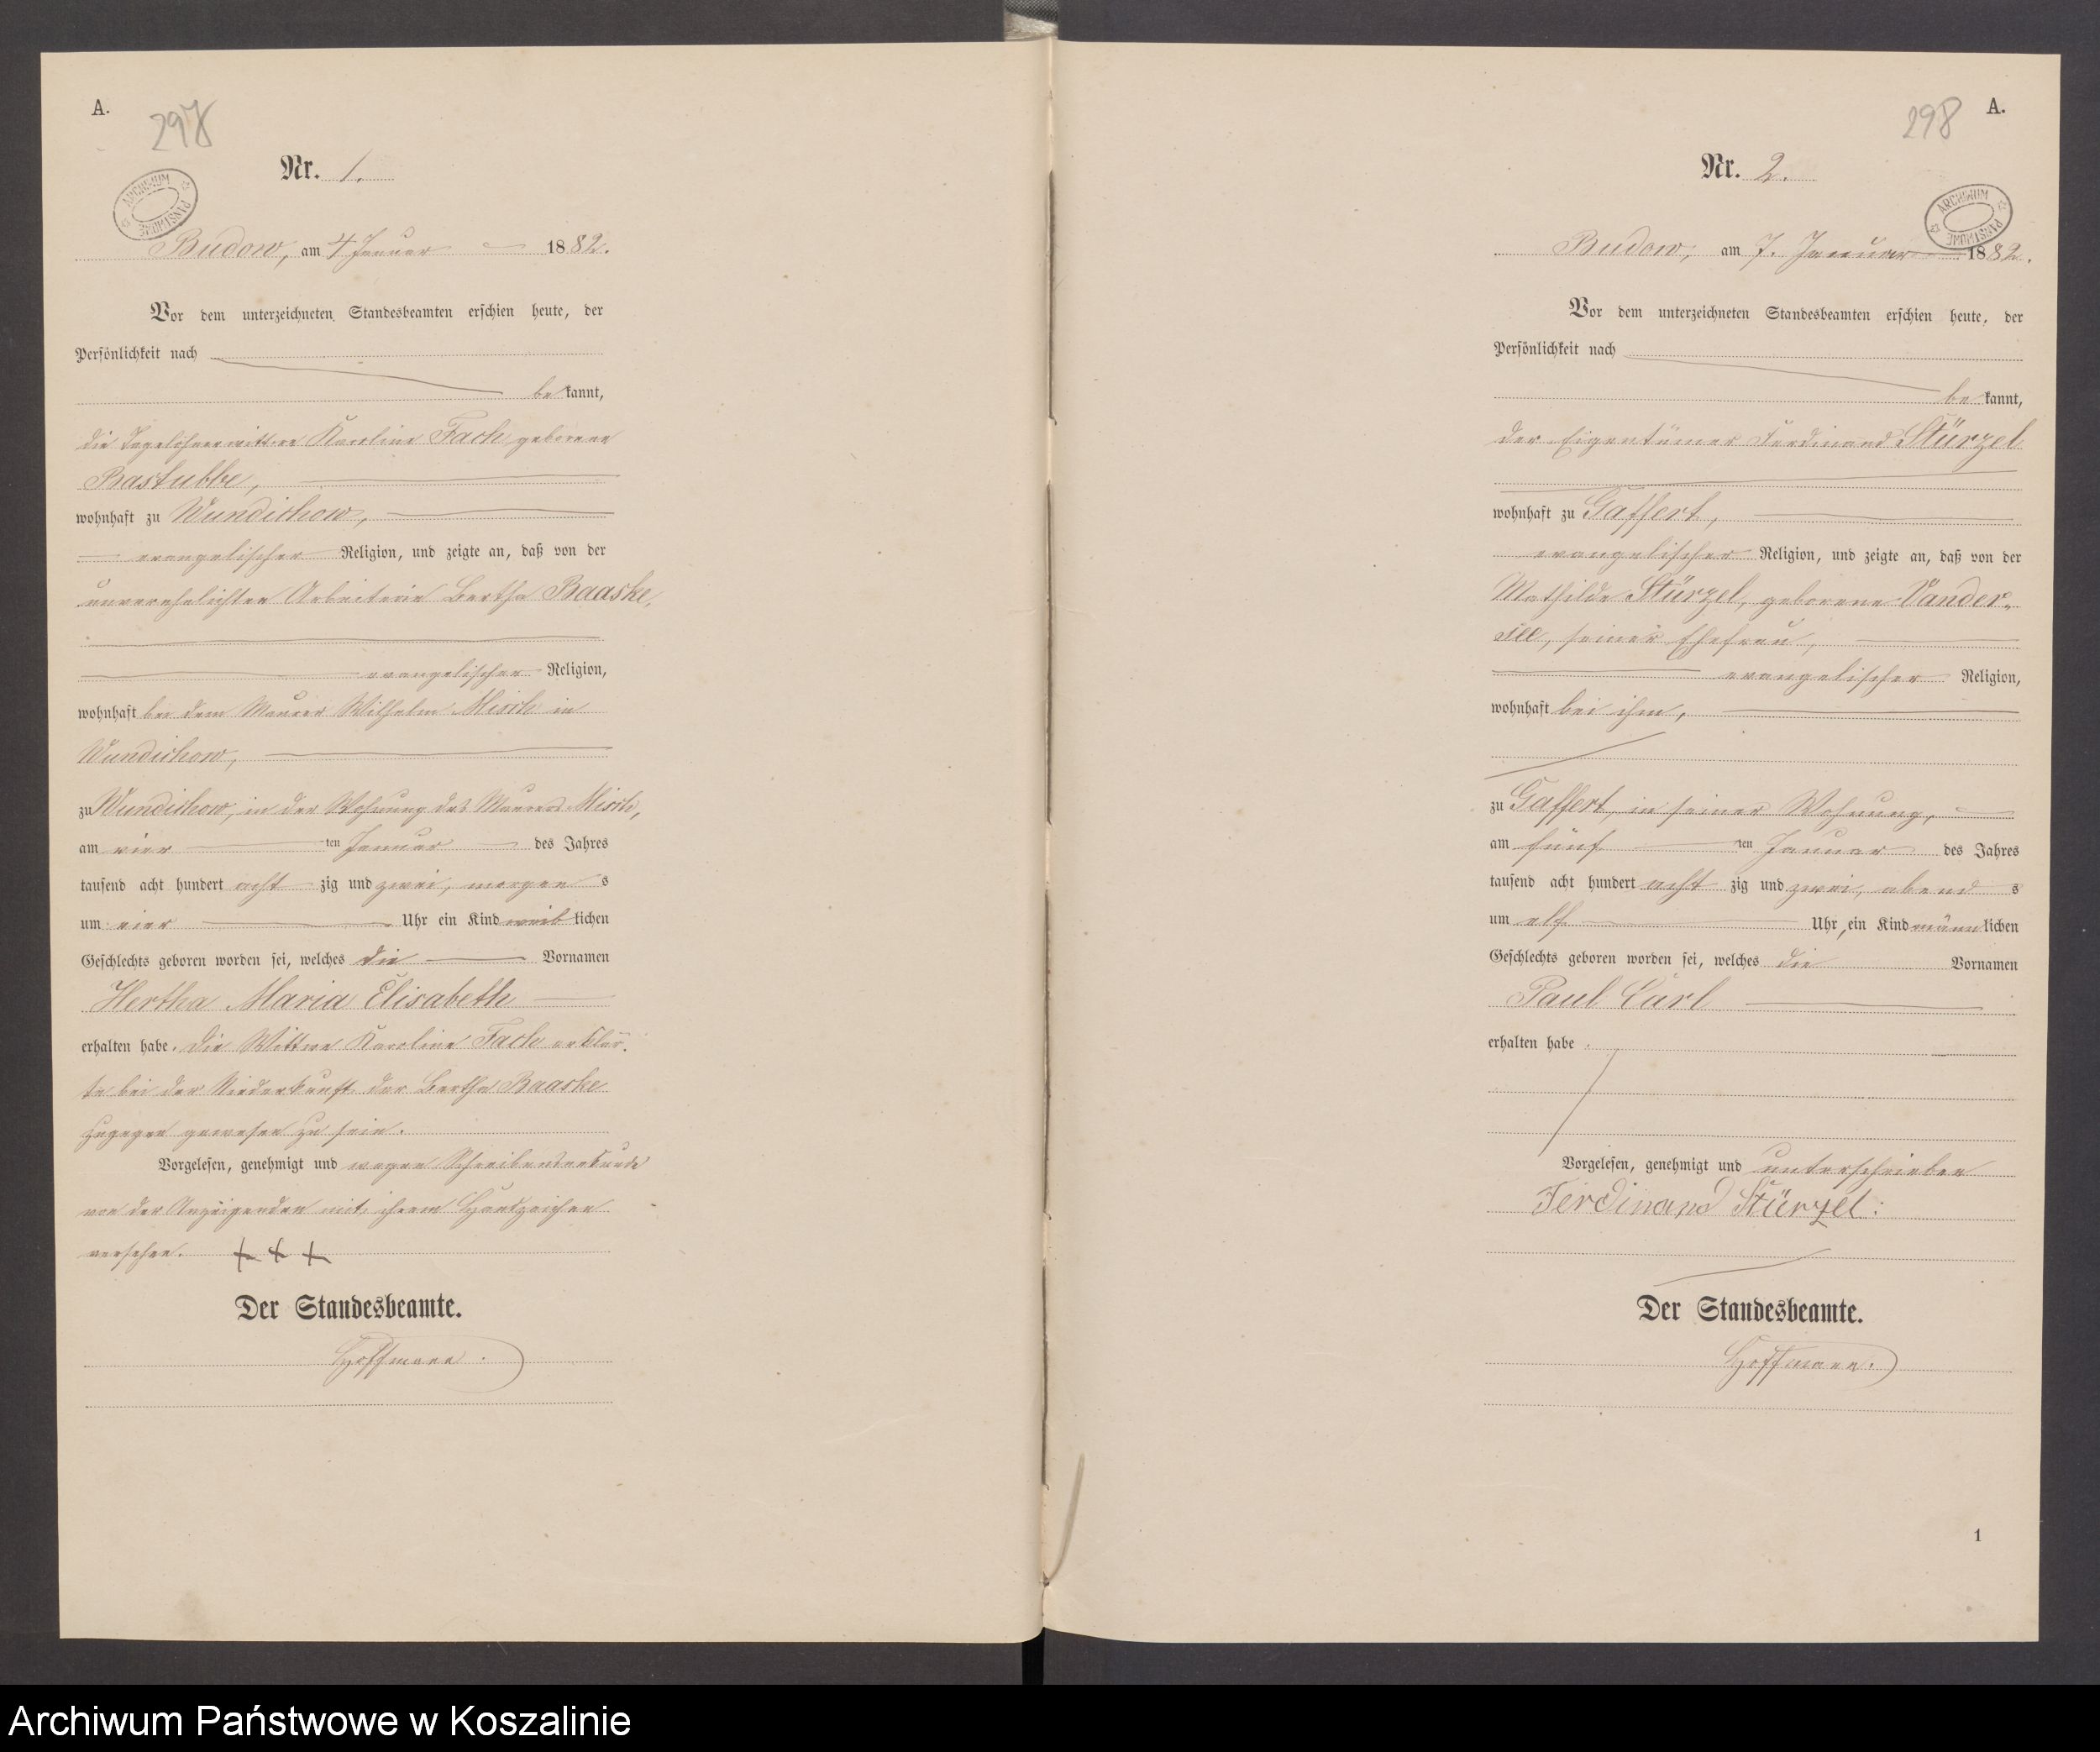 A.
297
Nr. 1.
ARCHIWUM PAŃSTWOWE
Budow, am 4 Januar 1882.
Vor dem unterzeichneten Standesbeamten erschien heute, der
Persönlichkeit nach
be kannt,
die Tagelöhnerwittwe Karoline Fach geborene
Rastubbe,
wohnhaft zu Wundichow,
evangelischer Religion, und zeigte an, daß von der
unverehelichten Arbeiterin Bertha Baaske,
evangelischer Religion,
wohnhaft bei dem Maurer Wilhelm Misch in
Wundichow,
zu Wundichow, in der Wohnung des Maurers Misch,
am vier ten Januar des Jahres
tausend acht hundert acht zig und zwei, morgen s
um vier Uhr ein Kind weib lichen
Geschlechts geboren worden sei, welches die Vornamen
Hertha Maria Elisabeth
erhalten habe. Die Wittwe Karoline Fach erklär-
te bei der Niederkunft der Bertha Baaske
zugegen gewesen zu sein.
Vorgelesen, genehmigt und wegen Schreibensunkunde
von der Anzeigenden mit ihrem Handzeichen
versehen. + + +
Der Standesbeamte.
Hoffmann.
298
A.
Nr. 2.
ARCHIWUM PAŃSTWOWE
Budow, am 7. Januar 1882.
Vor dem unterzeichneten Standesbeamten erschien heute, der
Persönlichkeit nach
be kannt,
der Eigentümer Ferdinand Stürzel
wohnhaft zu Gaffert,
evangelischer Religion, und zeigte an, daß von der
Mathilde Stürzel, geborene Vander-
see, seiner Ehefrau,
evangelischer Religion,
wohnhaft bei ihm,
zu Gaffert, in seiner Wohnung,
am fünf ten Januar des Jahres
tausend acht hundert acht zig und zwei, abend s
um elf Uhr, ein Kind männ lichen
Geschlechts geboren worden sei, welches die Vornamen
Paul Carl
erhalten habe.
Vorgelesen, genehmigt und unterschrieben
Ferdinand Stürzel.
Der Standesbeamte.
Hoffmann.
1
Archiwum Państwowe w Koszalinie